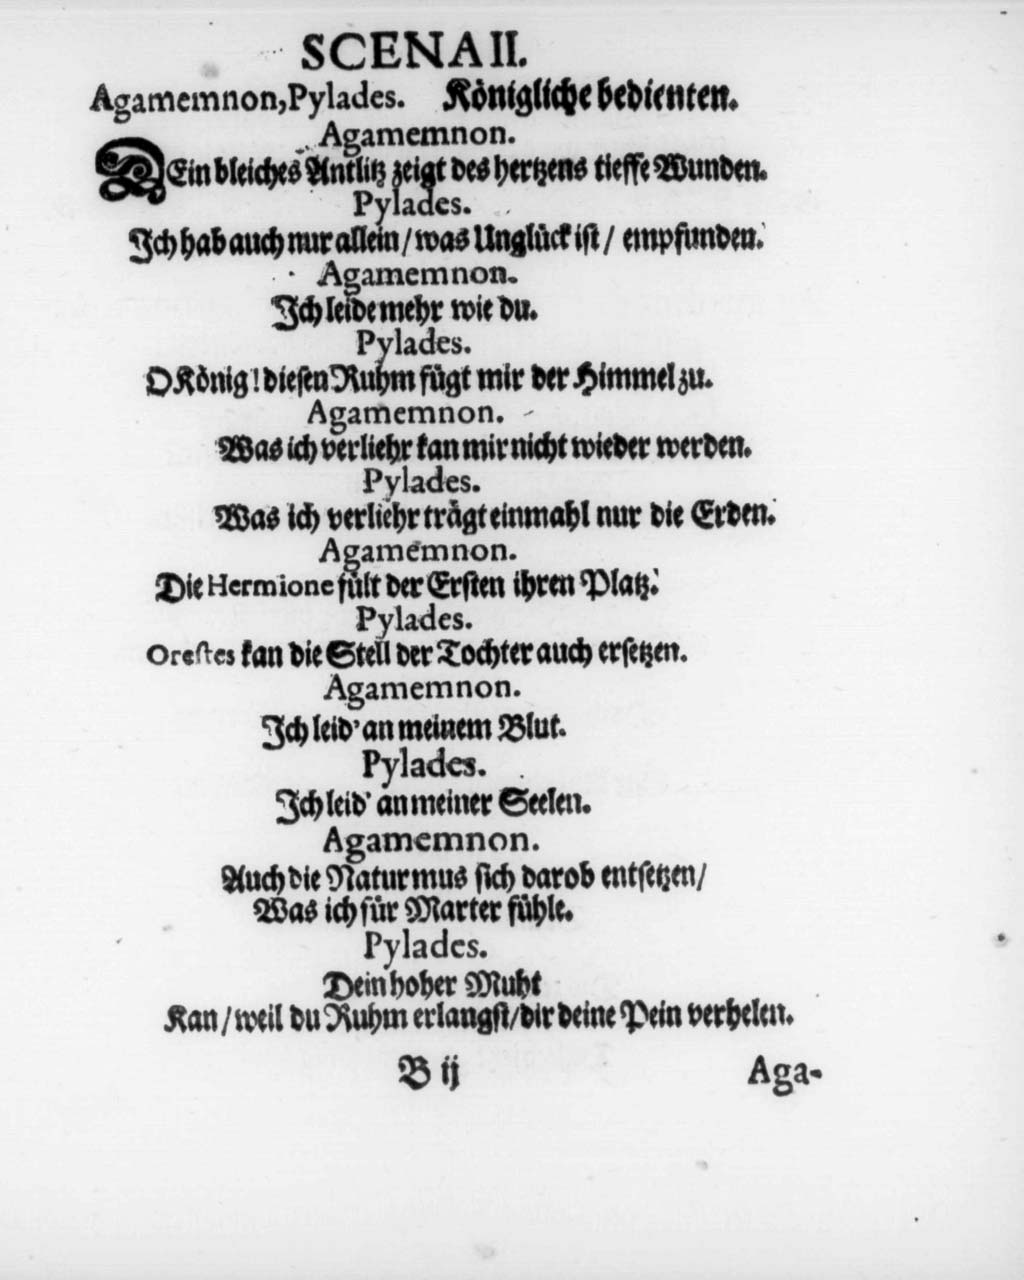 SCENA II.
Agamemnon, Pylades. Königliche bedienten.
Agamemnon.
DEin bleiches Antlitz zeigt des hertzens tieffe Wunden.
Pylades.
Ich hab auch nur allein / was Unglück ist / empfunden.
Agamemnon.
Ich leide mehr wie du.
Pylades.
O König! diesen Ruhm fügt mir der Himmel zu.
Agamemnon.
Was ich verliehr kan mir nicht wieder werden.
Pylades.
Was ich verliehr trägt einmahl nur die Erden.
Agamemnon.
Die Hermione fült der Ersten ihren Platz.
Pylades.
Orestes kan die Stell der Tochter auch ersetzen.
Agamemnon.
Ich leid' an meinem Blut.
Pylades.
Ich leid' an meiner Seelen.
Agamemnon.
Auch die Natur mus sich darob entsetzen /
Was ich für Marter fühle.
Pylades.
Dein hoher Muht
Kan / weil du Ruhm erlangst / dir deine Pein verhelen.
B ij Aga-